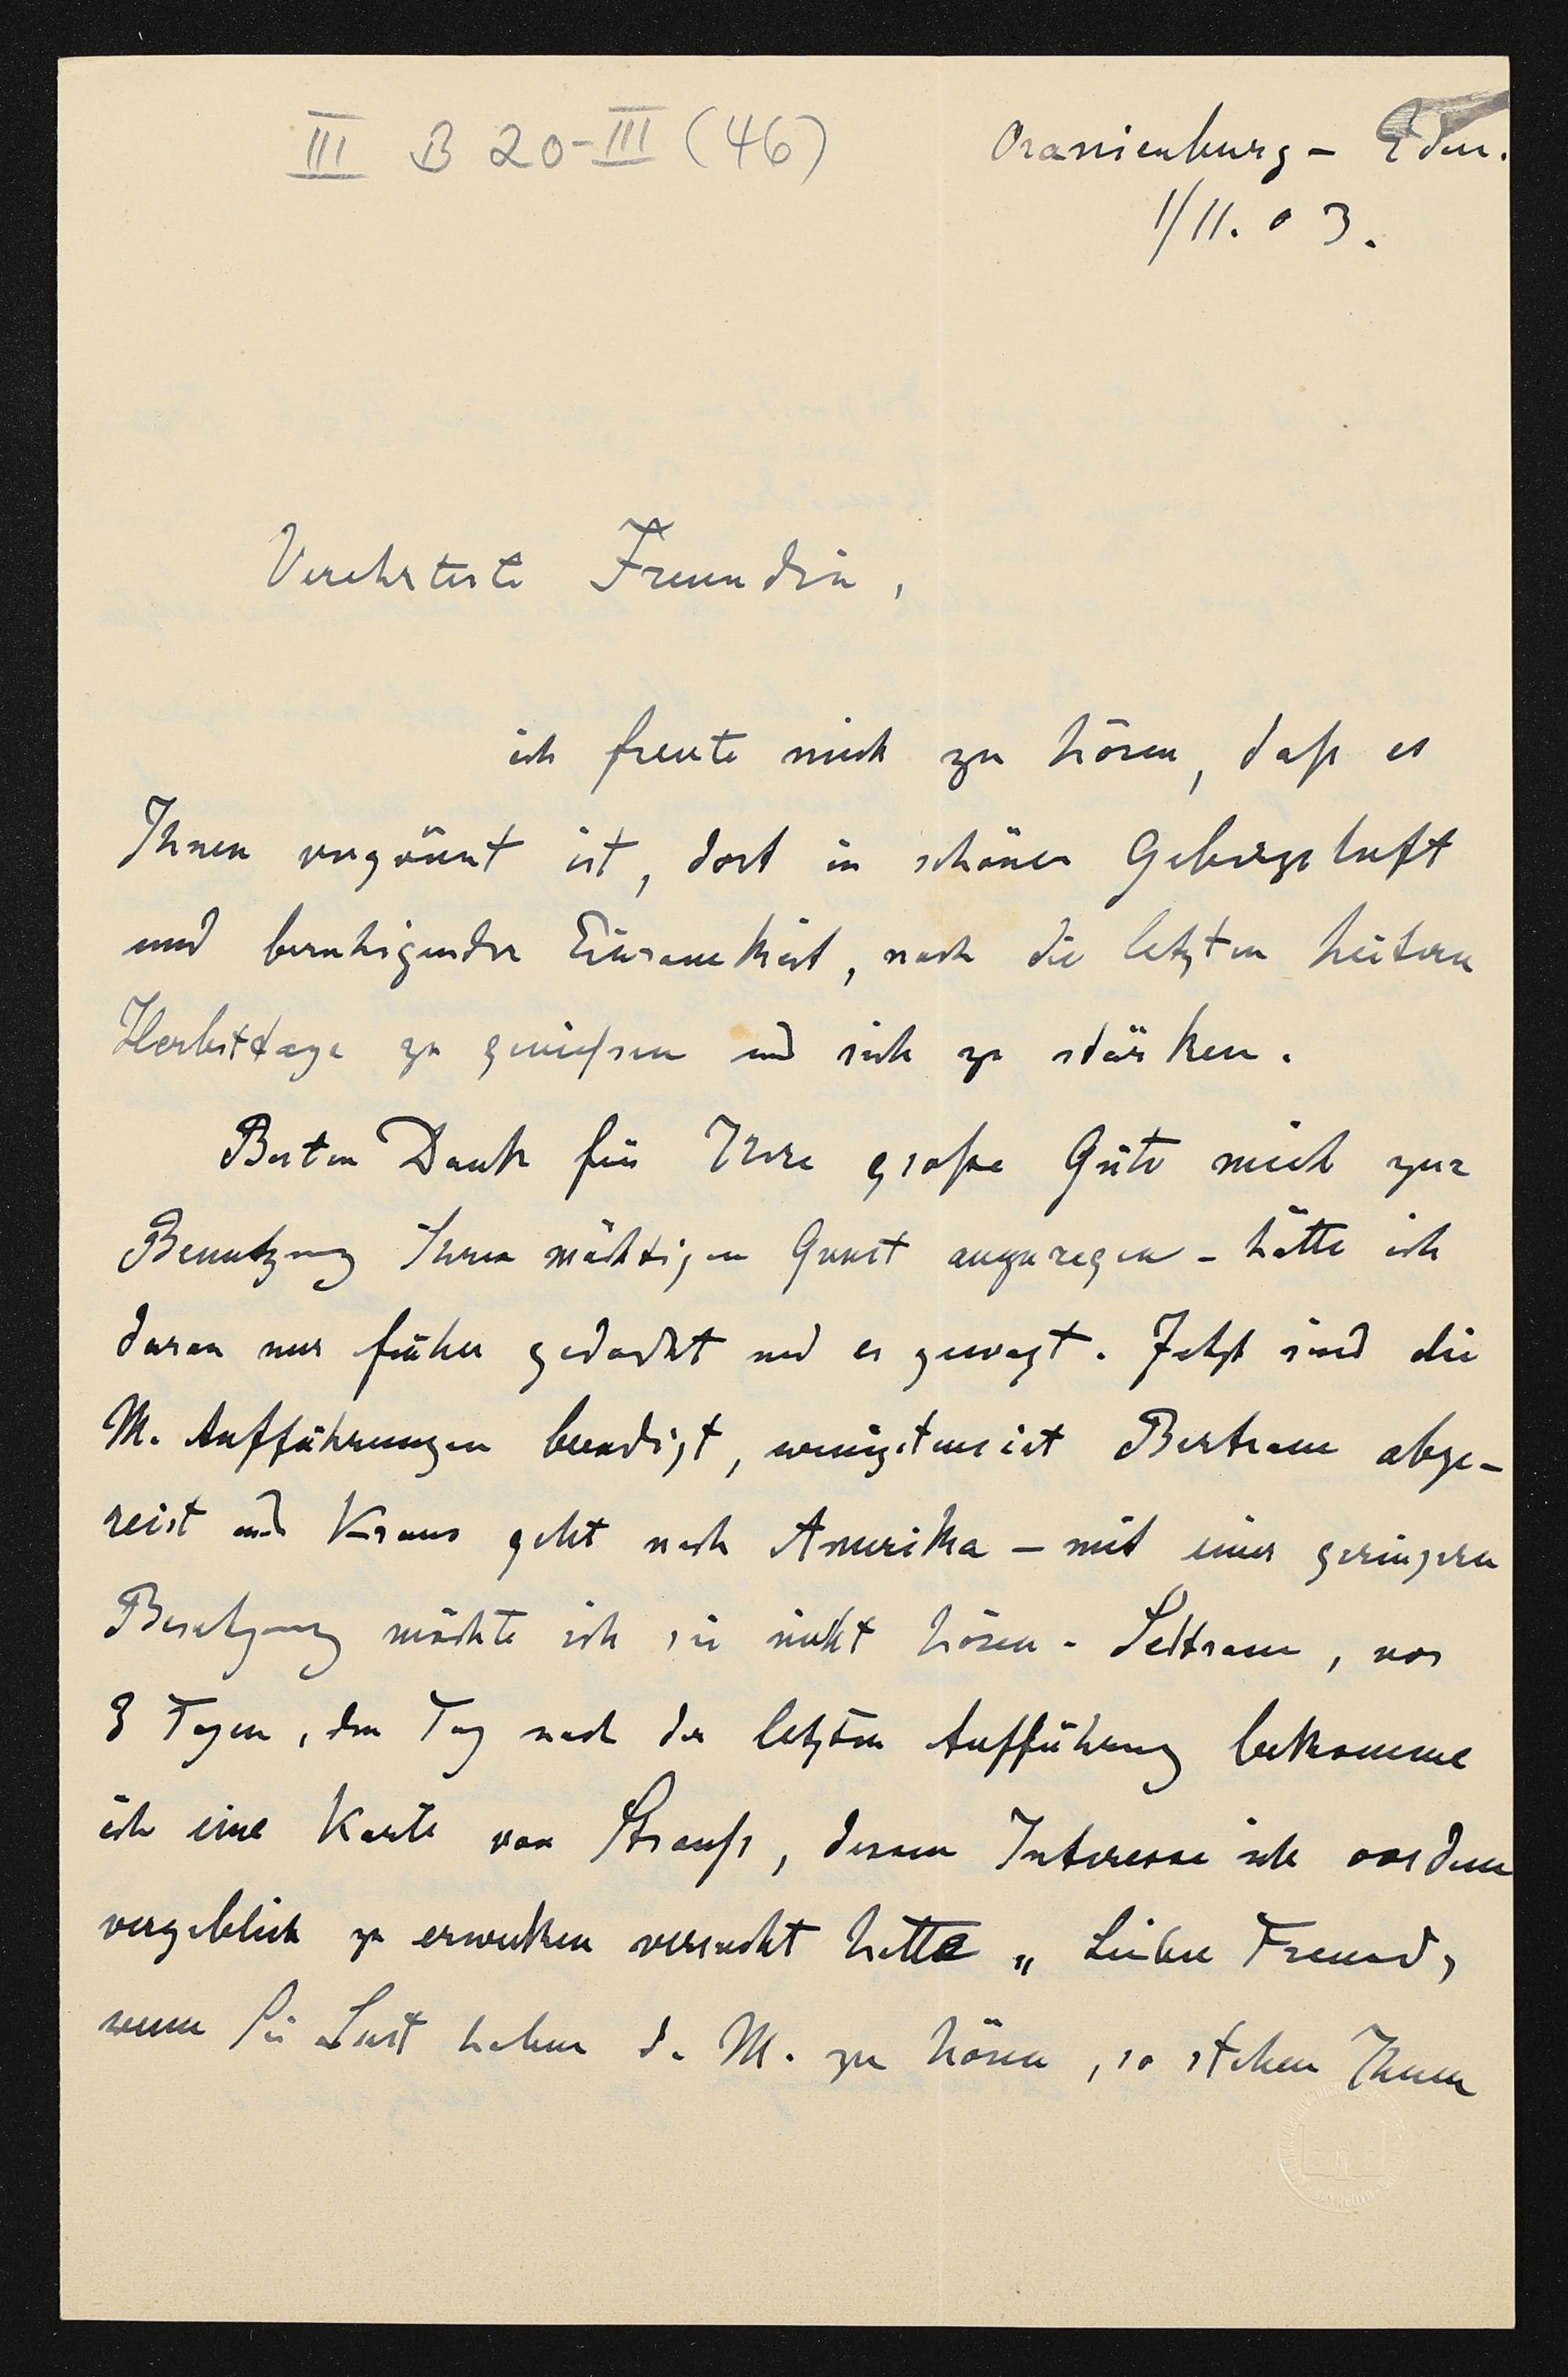 III B 20-III (46)
Oranienburg - Eden.
1/11. 03.
Verehrteste Freundin,
ich freute mich zu hören, daß es
Ihnen vergönnt ist, dort in schöner Gebirgsluft
und beruhigender Einsamkeit, noch die letzten heitern
Herbsttage zu genießen und sich zu stärken.
Besten Dank für Ihre große Güte mich zur
Benutzung Ihrer mächtigen Gunst anzuregen - hätte ich
daran nur früher gedacht und es gewagt. Jetzt sind die
M. Aufführungen beendigt, wenigstens ist Bertram abge-
reist und Kraus geht nach Amerika - mit einer geringern
Besetzung möchte ich sie nicht hören - Seltsam, vor
8 Tagen, den Tag nach der letzten Aufführung bekomme
ich eine Karte von Strauß, dessen Interesse ich vordem
vergeblich zu erwecken versucht hatte „ Lieber Freund,
wenn Sie Lust haben d. M. zu hören, so stehen Ihnen